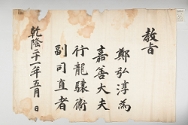 教旨
鄭弘淳為
嘉善大夫
行龍驤衛
副司直者
乾隆二十一年五月 日